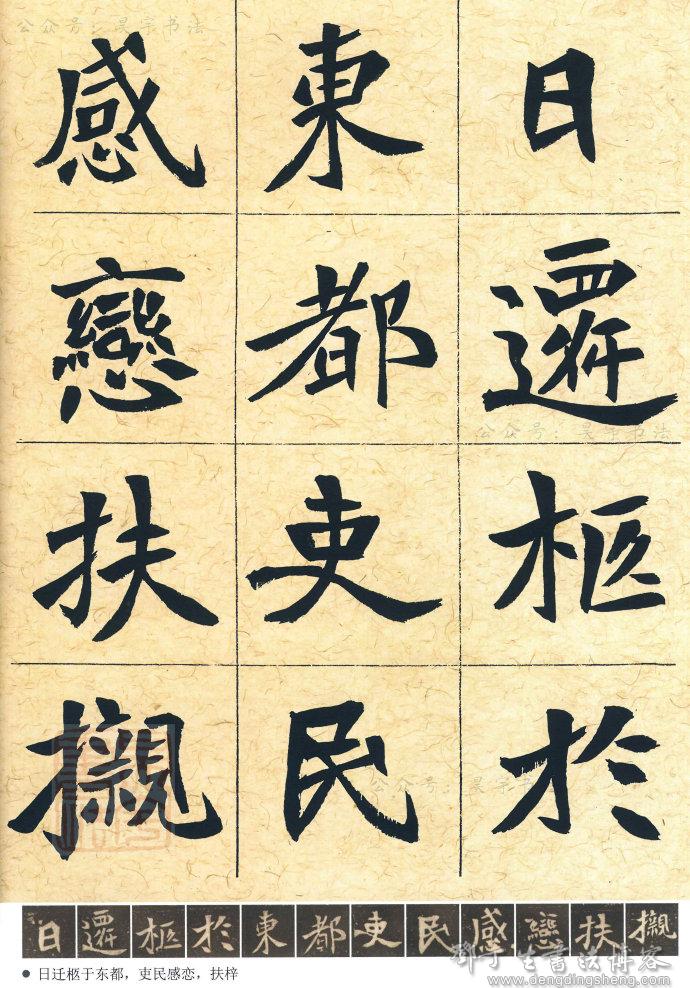 公众号：昊宇书法
日遷柩於
東都吏民
感戀扶櫬
公众号：昊宇书法
公众号：昊宇书法
日遷柩於東都吏民感戀扶櫬
● 日迁柩于东都，吏民感恋，扶梓
鄧丁生書法博客
www.dengdingsheng.com